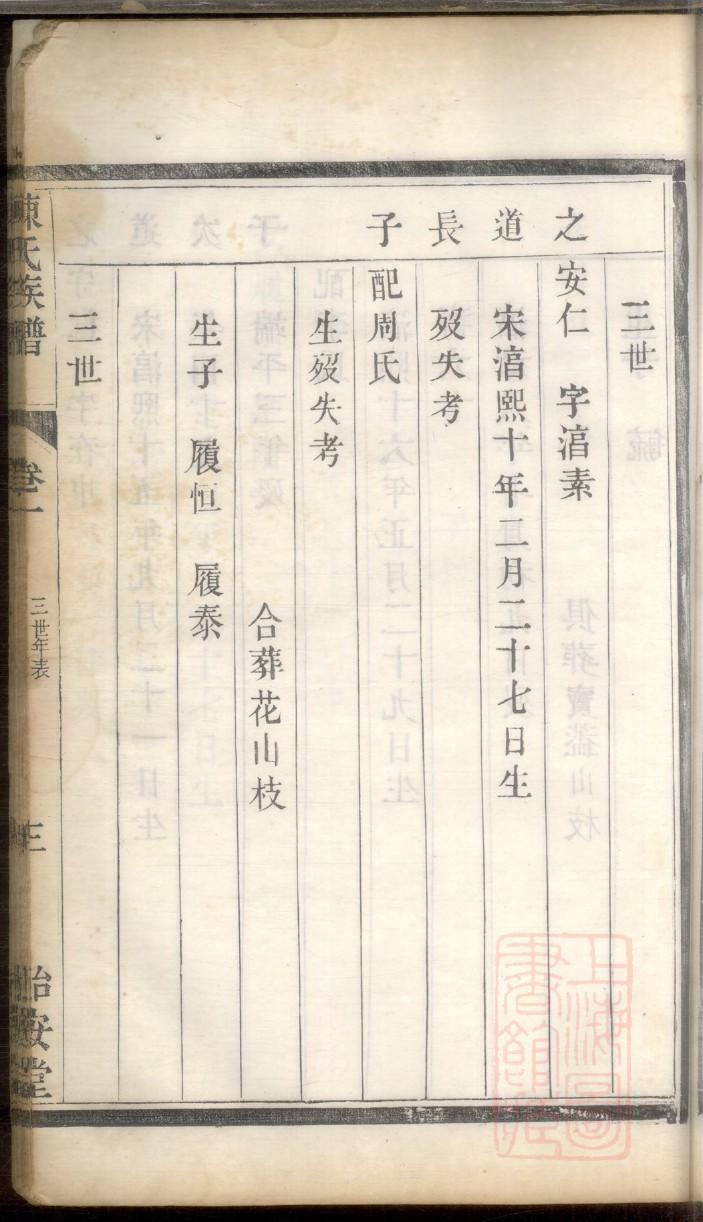 三世
之道長子
安仁 字㳷素
宋㳷熙十年二月二十七日生
歿失考
配周氏
生歿失考
合葬花山枝
生子 履恒 履泰
三世
陳氏族譜
卷一
三世年表
怡安堂
上海圖書館藏